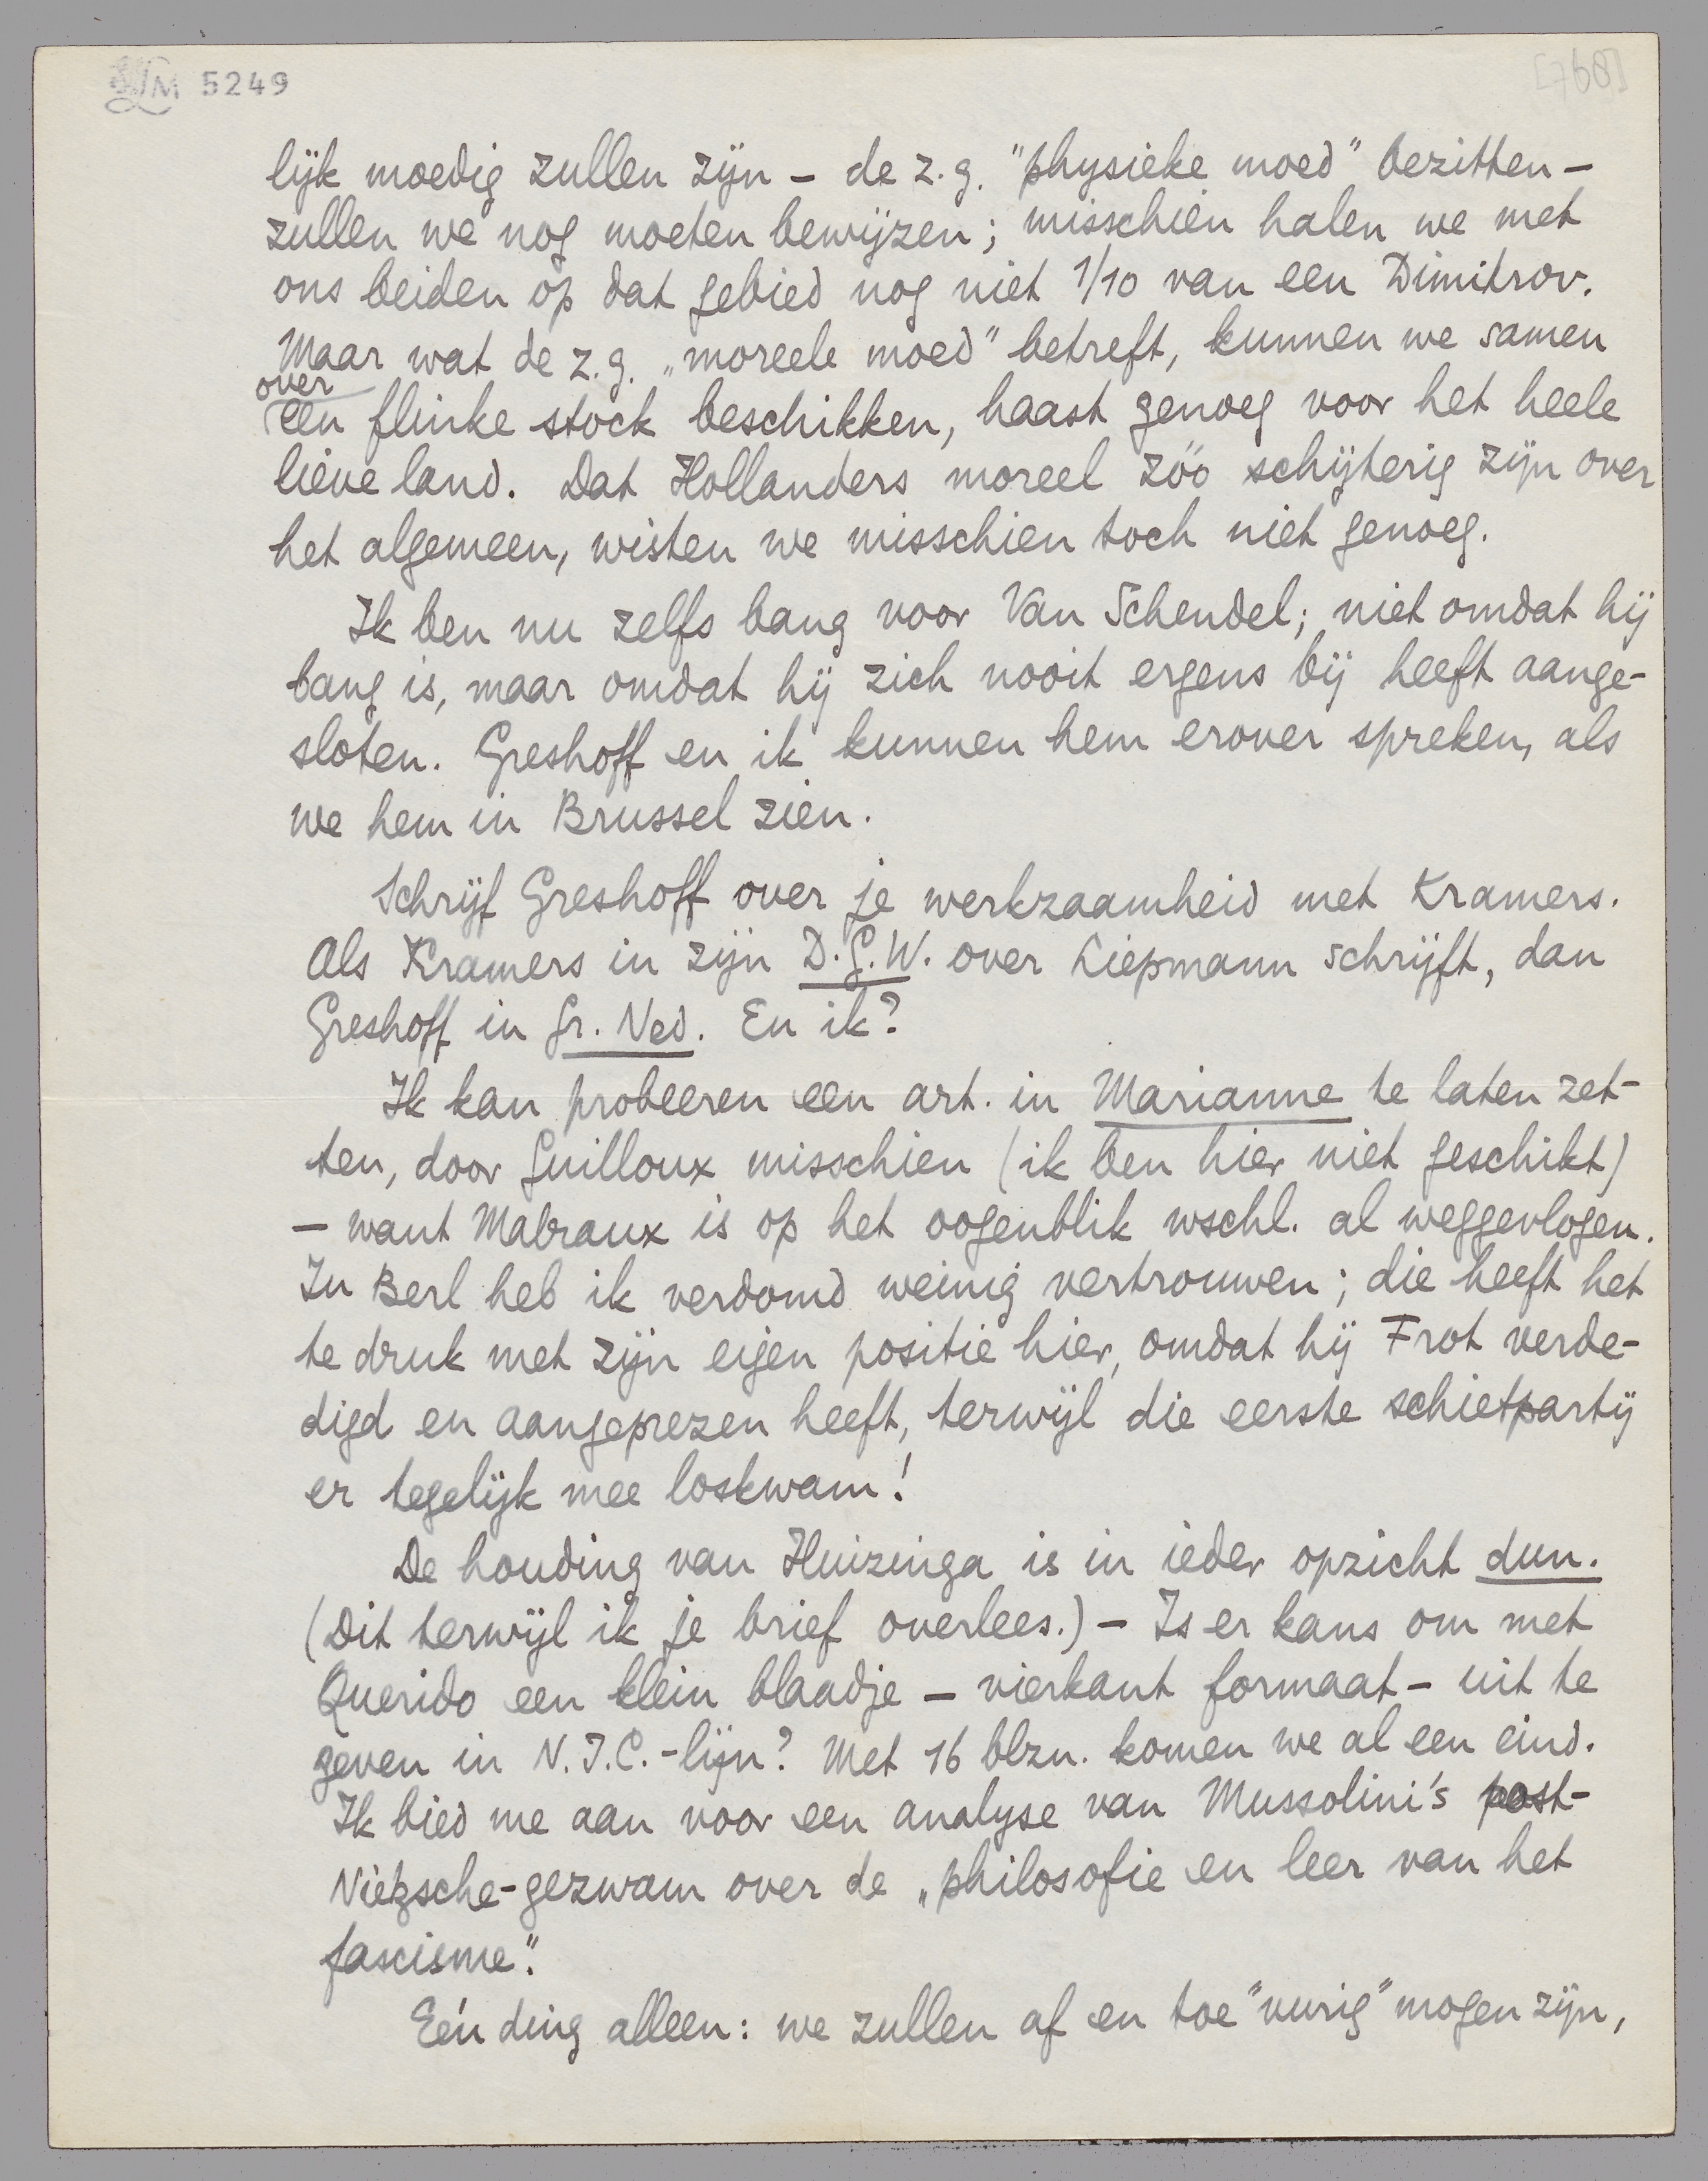 LM 5249
[768]
lijk moedig zullen zijn – de z.g. "physieke moed" bezitten –
zullen we nog moeten bewijzen; misschien halen we met
ons beiden op dat gebied nog niet 1/10 van een Dimitrov.
Maar wat de z.g. „moreele moed" betreft, kunnen we samen
over
een flinke stock beschikken, haast genoeg voor het heele
lieve land. Dat Hollanders moreel zóó schijterig zijn over
het algemeen, wisten we misschien toch niet genoeg.
Ik ben nu zelfs bang voor Van Schendel; niet omdat hij
bang is, maar omdat hij zich nooit ergens bij heeft aange-
sloten. Greshoff en ik kunnen hem erover spreken, als
we hem in Brussel zien.
Schrijf Greshoff over je werkzaamheid met Kramers.
Als Kramers in zijn D.G.W. over Liepmann schrijft, dan
Greshoff in Gr. Ned. En ik?
Ik kan probeeren een art. in Marianne te laten zet-
ten, door Guilloux misschien (ik ben hier niet geschikt)
– want Malraux is op het oogenblik wschl. al weggevlogen.
In Berl heb ik verdomd weinig vertrouwen; die heeft het
te druk met zijn eigen positie hier, omdat hij Frot verde-
digd en aangeprezen heeft, terwijl die eerste schietpartij
er tegelijk mee loskwam!
De houding van Huizinga is in ieder opzicht dun.
(Dit terwijl ik je brief overlees.) – Is er kans om met
Querido een klein blaadje – vierkant formaat – uit te
geven in N.T.C.-lijn? Met 16 blzn. komen we al een eind.
Ik bied me aan voor een analyse van Mussolini's post-
Nietzsche-gezwam over de „philosofie en leer van het
fascisme".
Eén ding alleen: we zullen af en toe "vurig" mogen zijn,